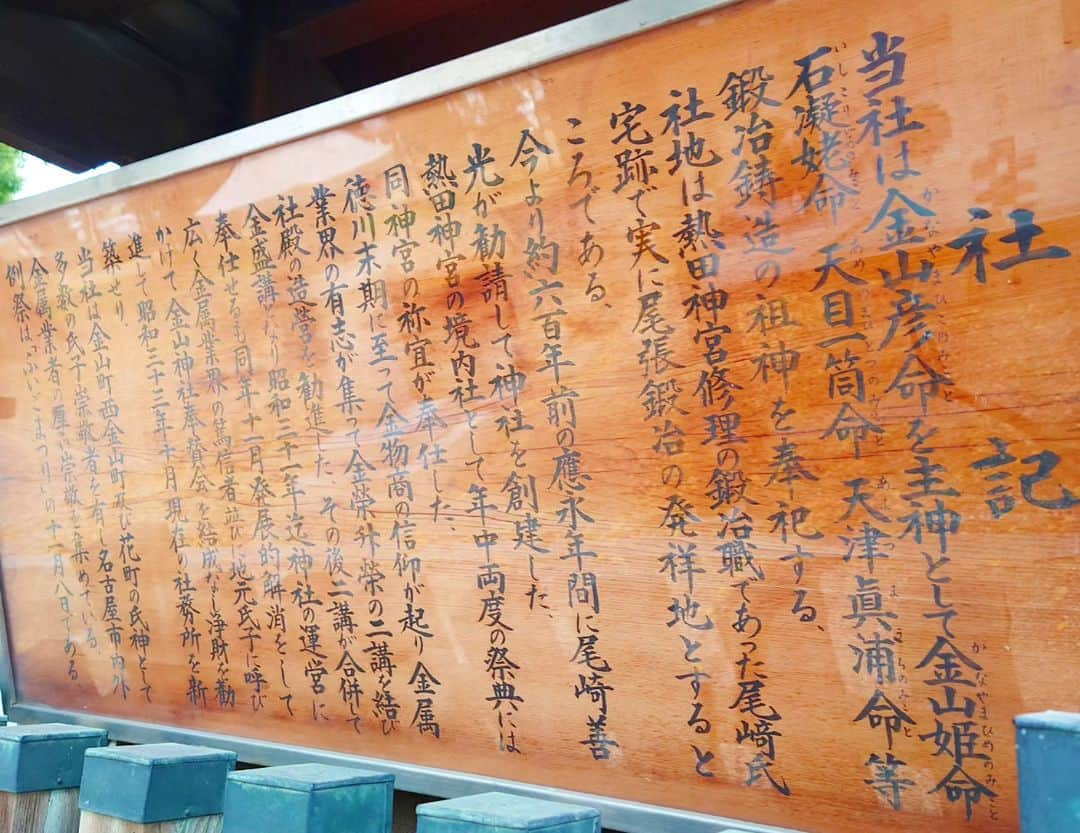 社記
当社は金山彦命を主神として金山姫命
石凝姥命 天目一箇命 天津眞浦命等
鍛冶鋳造の祖神を奉祀する、
社地は熱田神宮修理の鍛冶職であった尾﨑氏
宅跡で実に尾張鍛冶の発祥地とすると
ころである、
今より約六百年前の應永年間に尾崎善
光が勧請して神社を創建した、
熱田神宮の境内社として年中両度の祭典には
同神宮の祢宜が奉仕した、
徳川末期に至って金物商の信仰が起り金属
業界の有志が集って金榮舛榮の二講を結び
社殿の造営を勧進した、その後二講が合併して
金盛講となり昭和二十一年迄神社の運営に
奉仕せるも同年十一月発展的解消をして
広く金属業界の篤信者並びに地元氏子に呼び
かけて金山神社奉賛会を結成なし浄財を勧
進して昭和三十三年十月現在の社務所を新
築せり、
当社は金山町西金山町及び花町の氏神として
多数の氏子崇敬者を有し名古屋市内外
金属業者の厚い崇敬を集めている、
例祭はふいごまつりの十一月八日である、